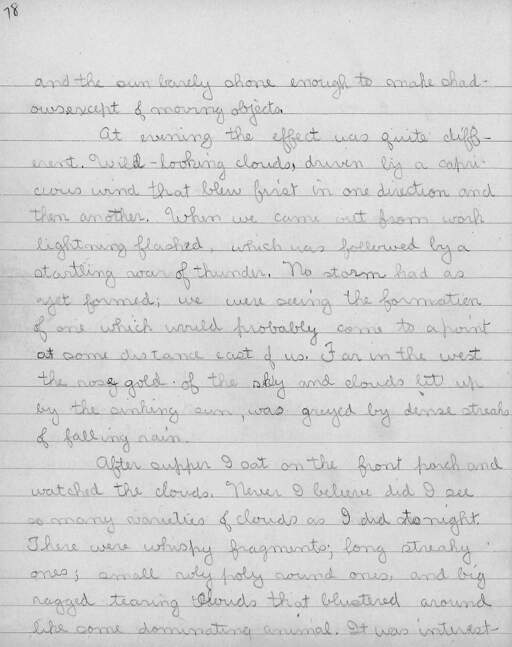 78
and the sun barely shone enough to make shad-
ows except of moving objects.
At evening the effect was quite diff-
erent. Wild-looking clouds, driven by a capri-
cious wind that blew first in one direction and
then another. When we came out from work
lightning flashed, which was followed by a
startling roar of thunder. No storm had as
yet formed; we were seeing the formation
of one which would probably come to a point
at some distance east of us. Far in the west
the rosy gold of the sky and clouds lit up
by the sinking sun, was greyed by dense streaks
of falling rain.
After supper I sat on the front porch and
watched the clouds. Never I believe did I see
so many varieties of clouds as I did tonight.
There were whispy fragments; long streaky
ones; small roly poly round ones, and big
ragged tearing clouds that blustered around
like some dominating animal. It was interest-